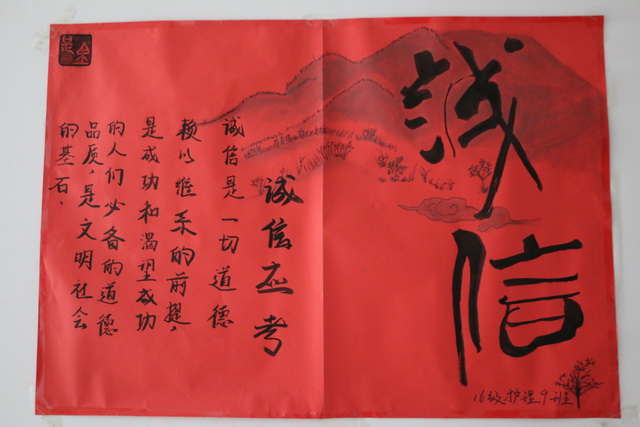 诚信
诚信应考
诚信是一切道德
赖以维系的前提，
是成功和渴望成功
的人们必备的道德
品质，是文明社会
的基石．
16级护理9班